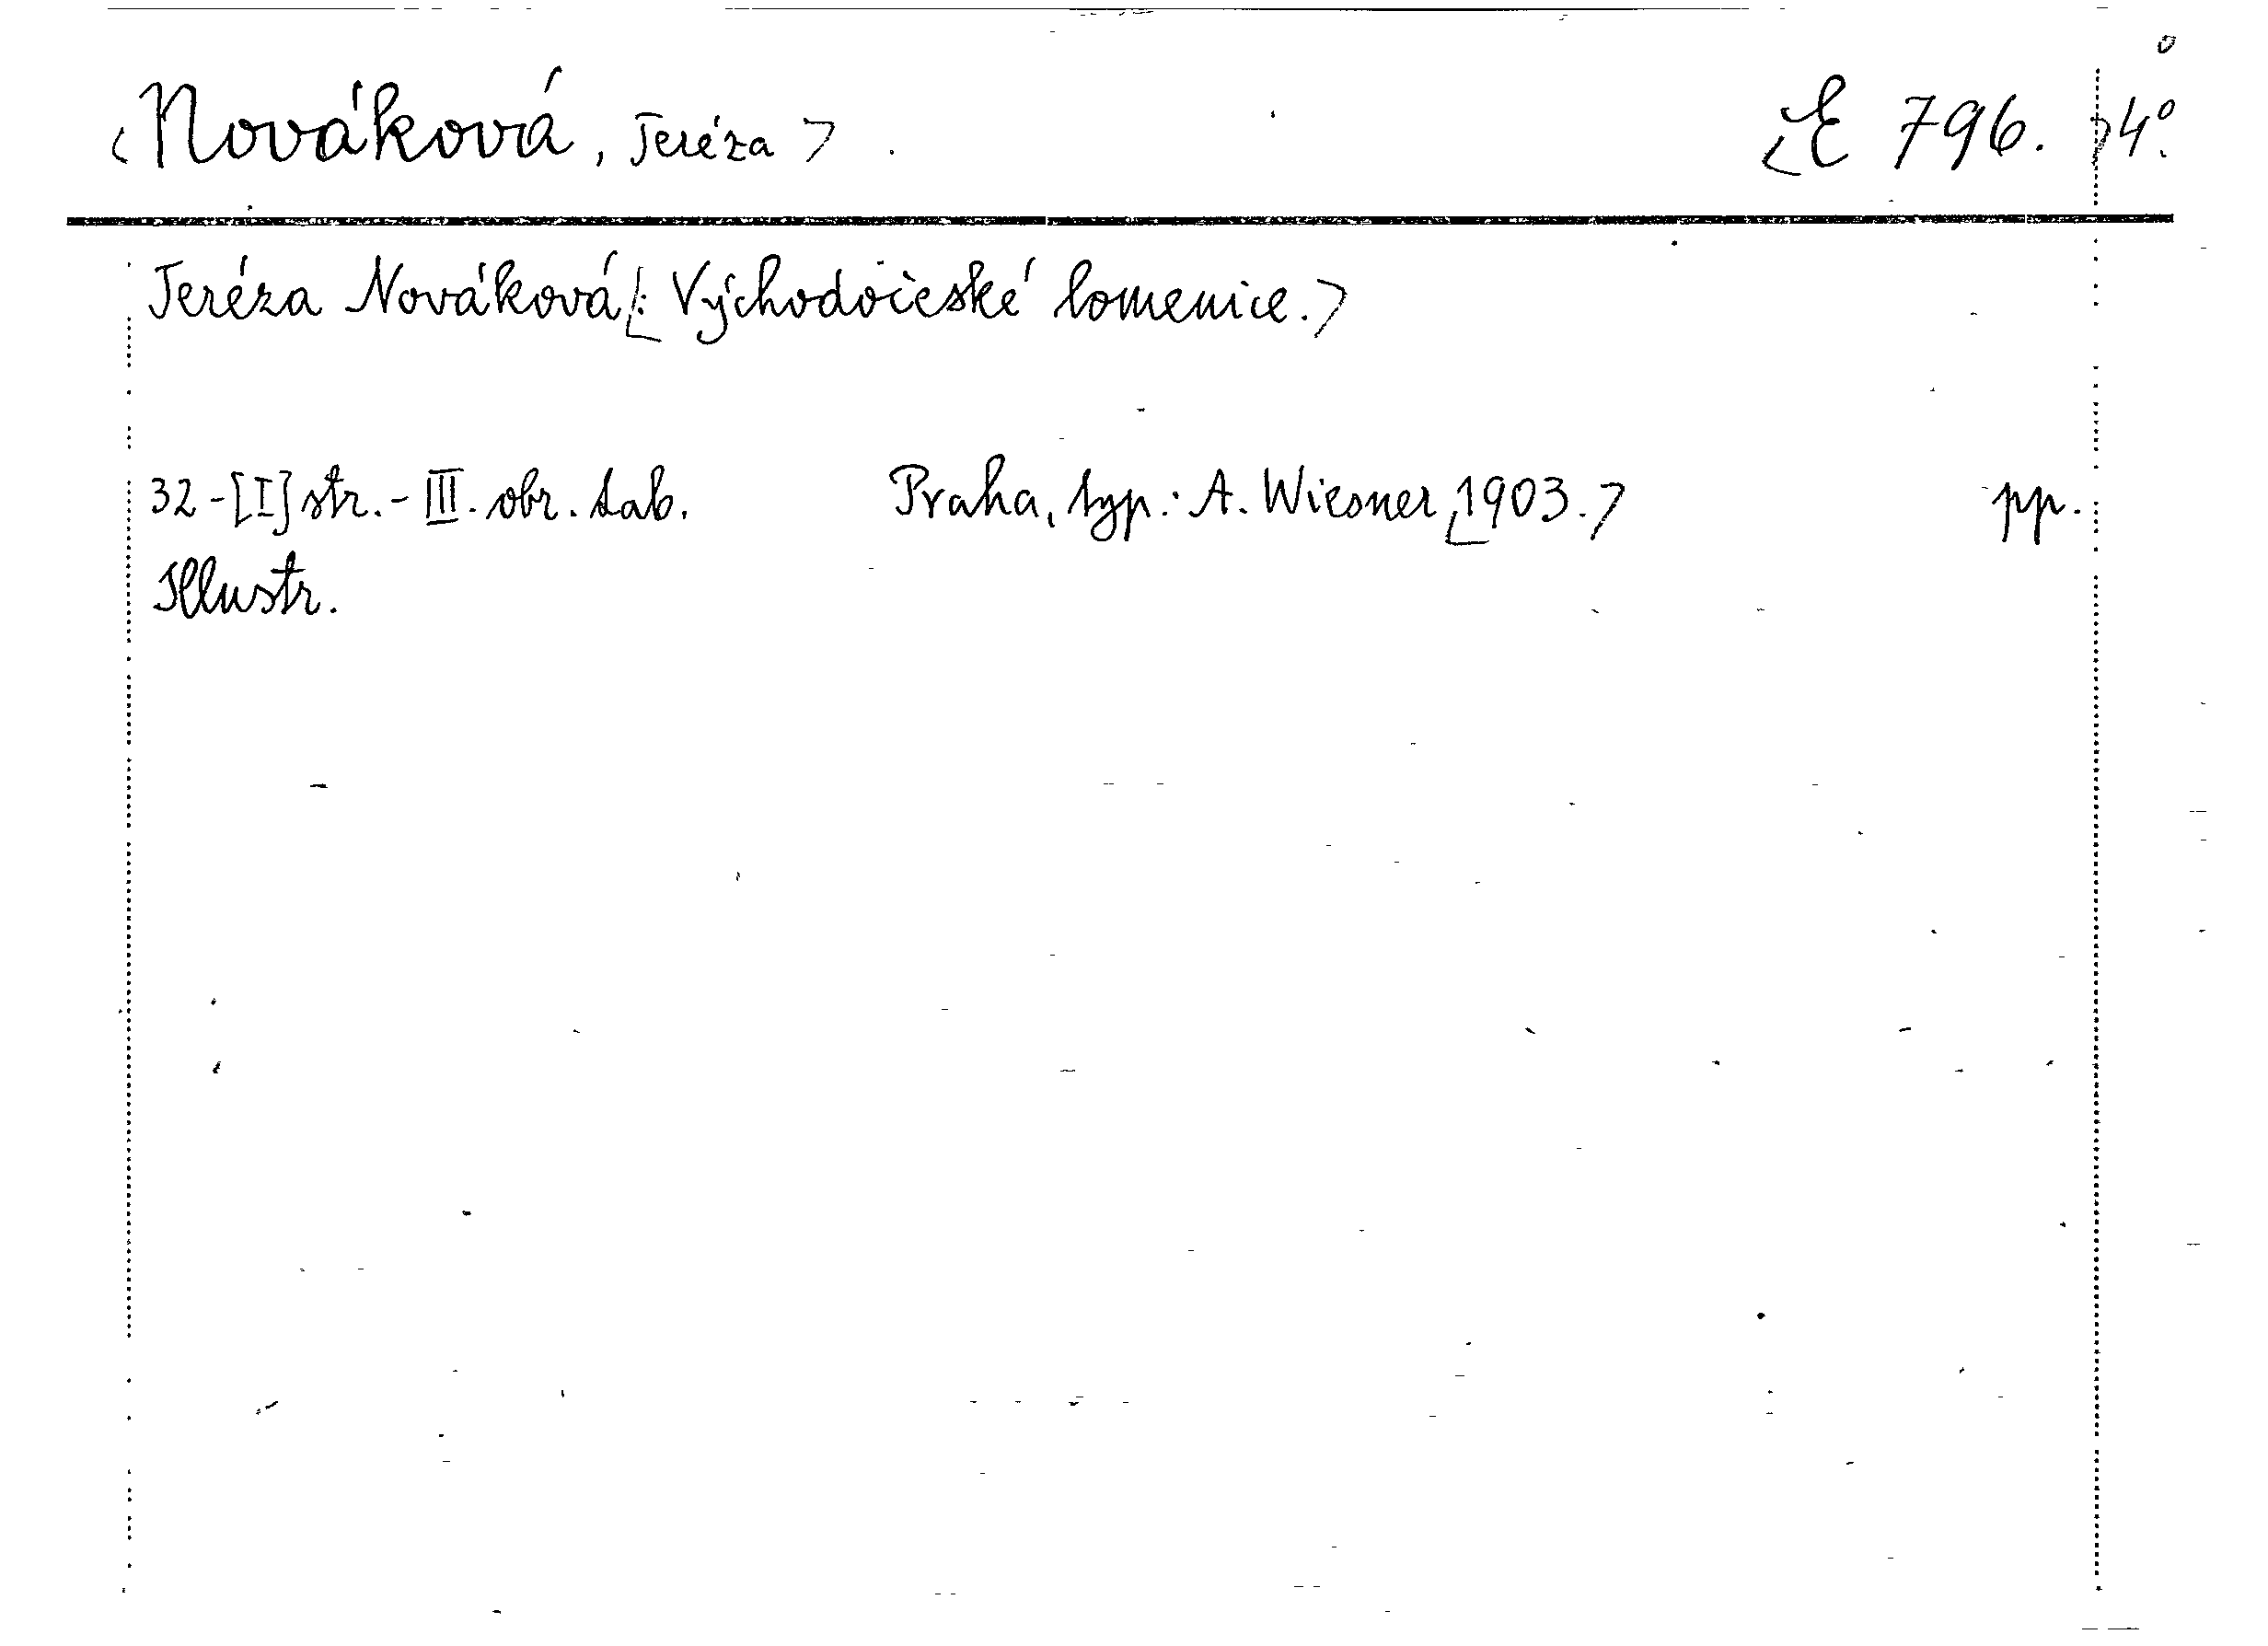 <Nováková, Teréza>. <E 796. >4°.
Teréza Nováková<: Východočeské lomenice.>
32-[I] str.-III. obr. tab. Praha, typ.: A. Wiesner <1903.> pp.
Illustr.